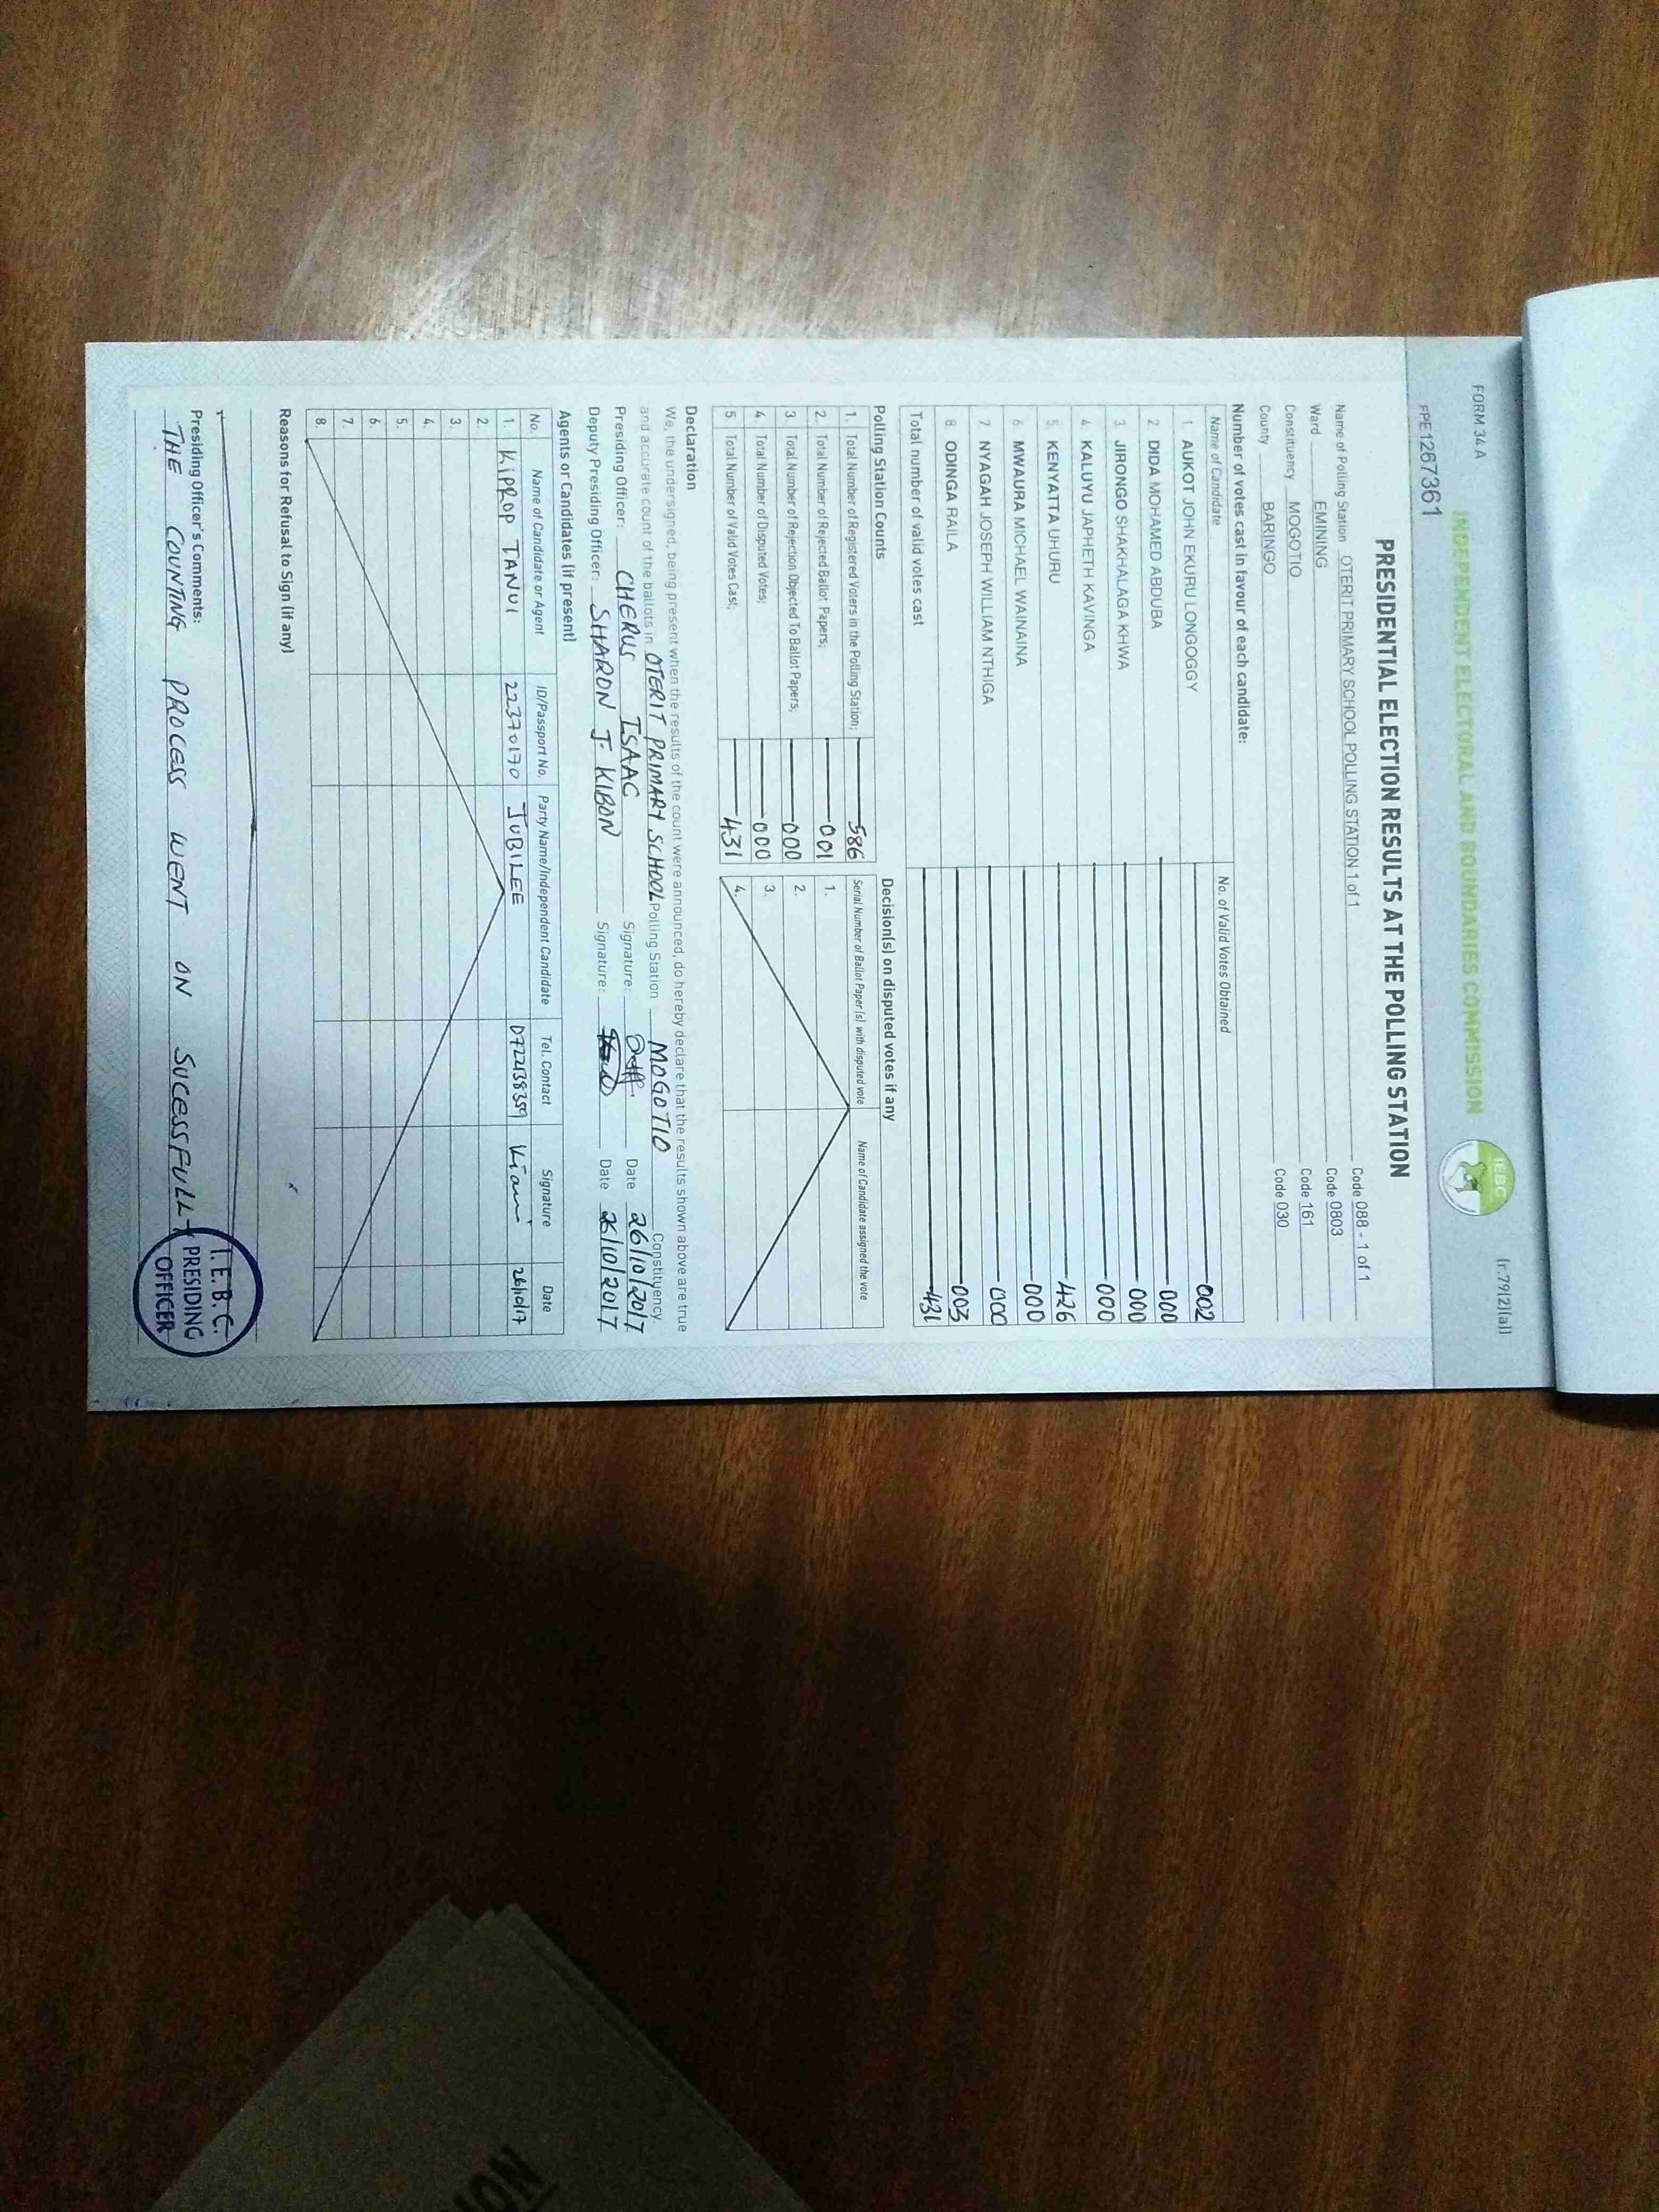 FORM 34A
(r.79(2)(a))
INDEPENDENT ELECTORAL AND BOUNDARIES COMMISSION
IEBC
PPE1267361
PRESIDENTIAL ELECTION RESULTS AT THE POLLING STATION
Name of Polling Station OTERIT PRIMARY SCHOOL POLLING STATION 1 of 1 Code 088 - 1 of 1
Ward EMINING Code 0803
Constituency MOGOTIO Code 161
County BARINGO Code 030
Number of votes cast in favour of each candidate:
Name of Candidate No. of Valid Votes Obtained
1 AUKOT JOHN EKURU LONGOGGY 002
2 DIDA MOHAMED ABDUBA 000
3 JIRONGO SHAKHALAGA KHWA 000
4 KALUYU JAPHETH KAVINGA 000
5 KENYATTA UHURU 426
6 MWAURA MICHAEL WAINAINA 000
7 NYAGAH JOSEPH WILLIAM NTHIGA 000
8 ODINGA RAILA 003
Total number of valid votes cast 431
Polling Station Counts
1. Total Number of Registered Voters in the Polling Station; 586
2. Total Number of Rejected Ballot Papers; 001
3. Total Number of Rejection Objected To Ballot Papers; 000
4. Total Number of Disputed Votes; 000
5 Total Number of Valid Votes Cast; 431
Decision(s) on disputed votes if any
Serial Number of Ballot Paper (s) with disputed vote Name of Candidate assigned the vote
1.
2.
3.
4.
Declaration
We, the undersigned, being present when the results of the count were announced, do hereby declare that the results shown above are true
and accurate count of the ballots in OTERIT PRIMARY SCHOOL Polling Station MOGOTIO Constituency.
Presiding Officer: CHERUS ISAAC Signature: Date 26/10/2017
Deputy Presiding Officer: SHARON J. KIBON Signature: Date 26/10/2017
Agents or Candidates (if present)
No. Name of Candidate or Agent ID/Passport No. Party Name/Independent Candidate Tel. Contact Signature Date
1. KIPROP TANUI 22370170 JUBILEE 0722138359 26/10/17
2.
3.
4.
5.
6.
7.
8.
Reasons for Refusal to Sign (if any)
Presiding Officer's Comments:
THE COUNTING PROCESS WENT ON SUCESSFULLY
I.E.B.C.
PRESIDING
OFFICER
ION